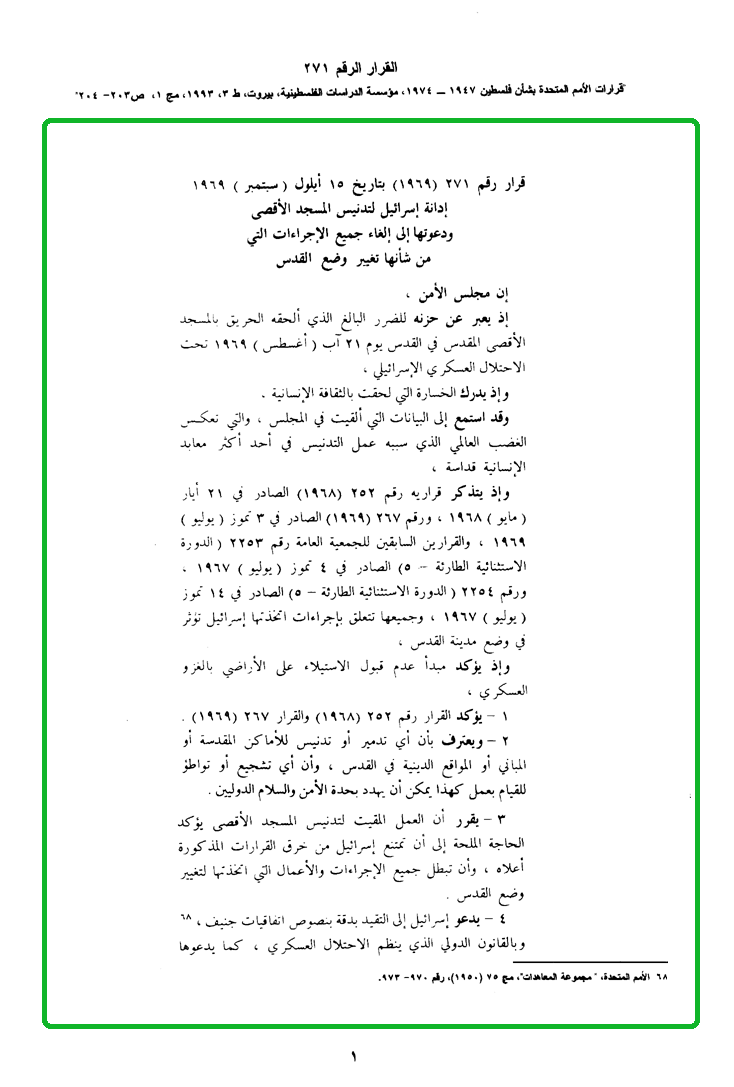 القرار الرقم ٢٧١
"قرارات الأمم المتحدة بشأن فلسطين ١٩٤٧ ــ ١٩٧٤، مؤسسة الدراسات الفلسطينية، بيروت، ط ٣، ١٩٩٣، مج ١، ص٢٠٣- ٢٠٤"
قرار رقم ٢٧١ (١٩٦٩) بتاريخ ١٥ أيلول ( سبتمبر ) ١٩٦٩
إدانة إسرائيل لتدنيس المسجد الأقصى
ودعوتها إلى إلغاء جميع الإجراءات التي
من شأنها تغيير وضع القدس
إن مجلس الأمن ،
إذ يعبر عن حزنه للضرر البالغ الذي ألحقه الحريق بالمسجد
الأقصى المقدس في القدس يوم ٢١ آب ( أغسطس ) ١٩٦٩ تحت
الاحتلال العسكري الإسرائيلي ،
وإذ يدرك الخسارة التي لحقت بالثقافة الإنسانية .
وقد استمع إلى البيانات التي ألقيت في المجلس ، والتي تعكس
الغضب العالمي الذي سببه عمل التدنيس في أحد أكثر معابد
الإنسانية قداسة ،
وإذ يتذكر قراريه رقم ٢٥٢ (١٩٦٨) الصادر في ٢١ أيار
( مايو ) ١٩٦٨ ، ورقم ٢٦٧ (١٩٦٩) الصادر في ٣ تموز ( يوليو )
١٩٦٩ ، والقرارين السابقين للجمعية العامة رقم ٢٢٥٣ ( الدورة
الاستثنائية الطارئة – ٥) الصادر في ٤ تموز ( يوليو ) ١٩٦٧ ،
ورقم ٢٢٥٤ ( الدورة الاستثنائية الطارئة – ٥) الصادر في ١٤ تموز
( يوليو ) ١٩٦٧ ، وجميعها تتعلق بإجراءات اتخذتها إسرائيل تؤثر
في وضع مدينة القدس ،
وإذ يؤكد مبدأ عدم قبول الاستيلاء على الأراضي بالغزو
العسكري ،
١ – يؤكد القرار رقم ٢٥٢ (١٩٦٨) والقرار ٢٦٧ (١٩٦٩) .
٢ – ويعترف بأن أي تدمير أو تدنيس للأماكن المقدسة أو
المباني أو المواقع الدينية في القدس ، وأن أي تشجيع أو تواطؤ
للقيام بعمل كهذا يمكن أن يهدد بحدة الأمن والسلام الدوليين .
٣ – يقرر أن العمل المقيت لتدنيس المسجد الأقصى يؤكد
الحاجة الملحة إلى أن تمتنع إسرائيل من خرق القرارات المذكورة
أعلاه ، وأن تبطل جميع الإجراءات والأعمال التي اتخذتها لتغيير
وضع القدس .
٤ – يدعو إسرائيل إلى التقيد بدقة بنصوص اتفاقيات جنيف ، ٦٨
وبالقانون الدولي الذي ينظم الاحتلال العسكري ، كما يدعوها
٦٨ الأمم المتحدة، "مجموعة المعاهدات"، مج ٧٥ (١٩٥٠)، رقم ٩٧٠- ٩٧٣.
١